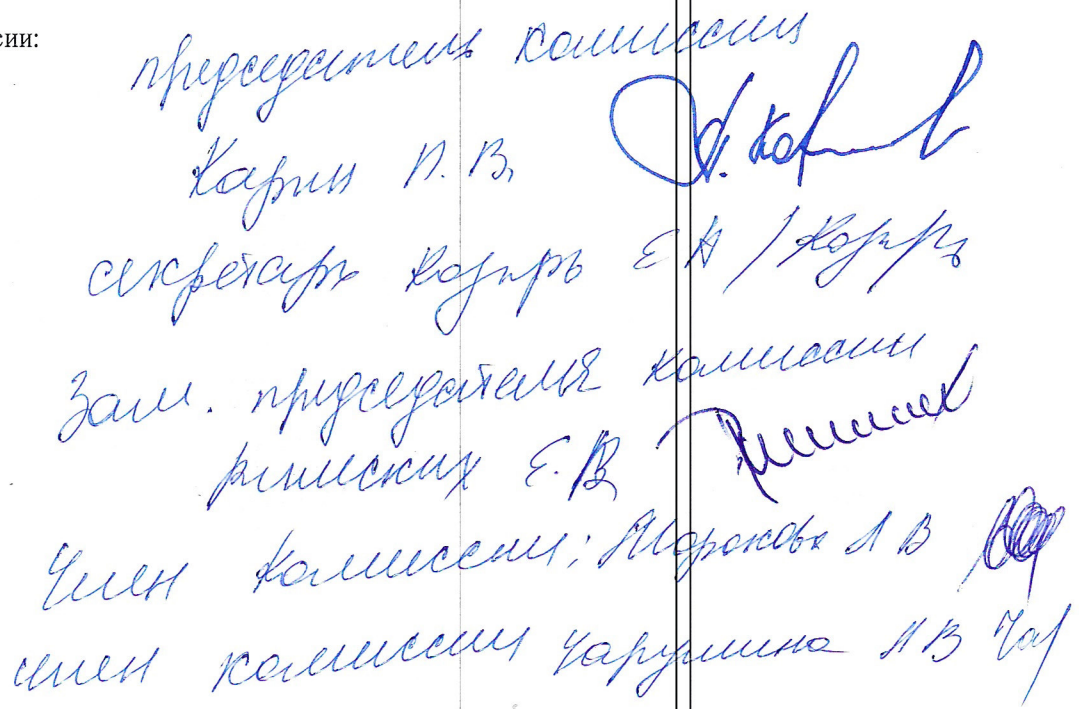 сии:
председатель комиссии
Карин П. В.
секретарь Козырь Е А / Козырь
Зам. председателя комиссии
Римских Е. В
Член комиссии: Широкова Л В
член комиссии Чарушина Н В Чар